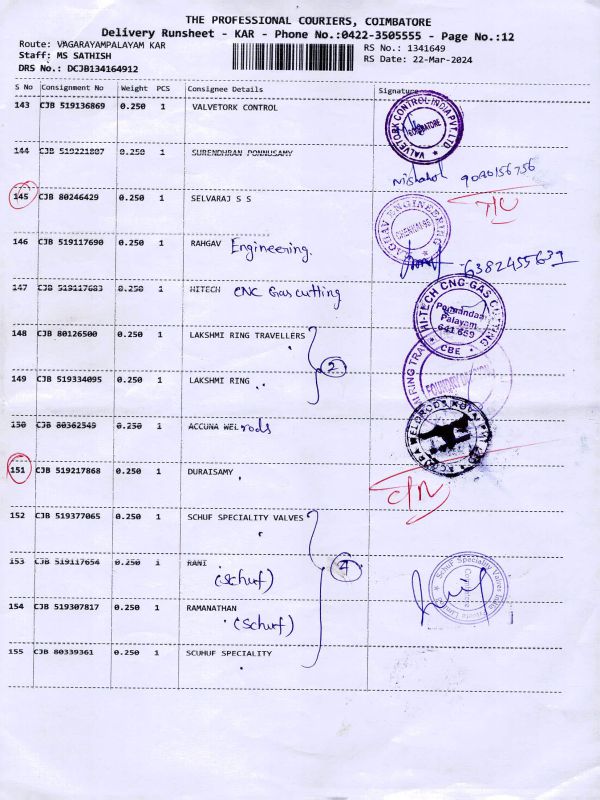 THE PROFESSIONAL COURIERS, COIMBATORE
Delivery Runsheet - KAR - Phone No.:0422-3505555 - Page No.:12
Route: VAGARAYAMPALAYAM KAR
RS No.: 1341649
Staff: MS SATHISH
RS Date: 22-Mar-2024
DRS No.: DCJB134164912
S No Consignment No Weight PCS Consignee Details Signature
143 CJB 519136869 0.250 1 VALVETORK CONTROL
VALVETORK CONTROL INDIA PVT. LTD
COIMBATORE
144 CJB 519221807 0.250 1 SURENDHRAN PONNUSAMY
Nishanth 9080156756
145 CJB 80246429 0.250 1 SELVARAJ S S
146 CJB 519117690 0.250 1 RAHGAV Engineering.
RAGHAV ENGINEERING
6382455639
147 CJB 519117683 0.250 1 HITECH CNC Gas cutting
HI-TECH CNC-GAS CUTTING
Palayam
CBE
148 CJB 80126500 0.250 1 LAKSHMI RING TRAVELLERS
2
149 CJB 519334095 0.250 1 LAKSHMI RING
FOUNDRY DIVISION
150 CJB 80362549 0.250 1 ACCUNA WEL rods
151 CJB 519217868 0.250 1 DURAISAMY
152 CJB 519377065 0.250 1 SCHUF SPECIALITY VALVES
4
153 CJB 519117654 0.250 1 RANI
(schuf)
Schuf Speciality Valves India Private Limited
154 CJB 519307817 0.250 1 RAMANATHAN
(schuf)
155 CJB 80339361 0.250 1 SCUHUF SPECIALITY